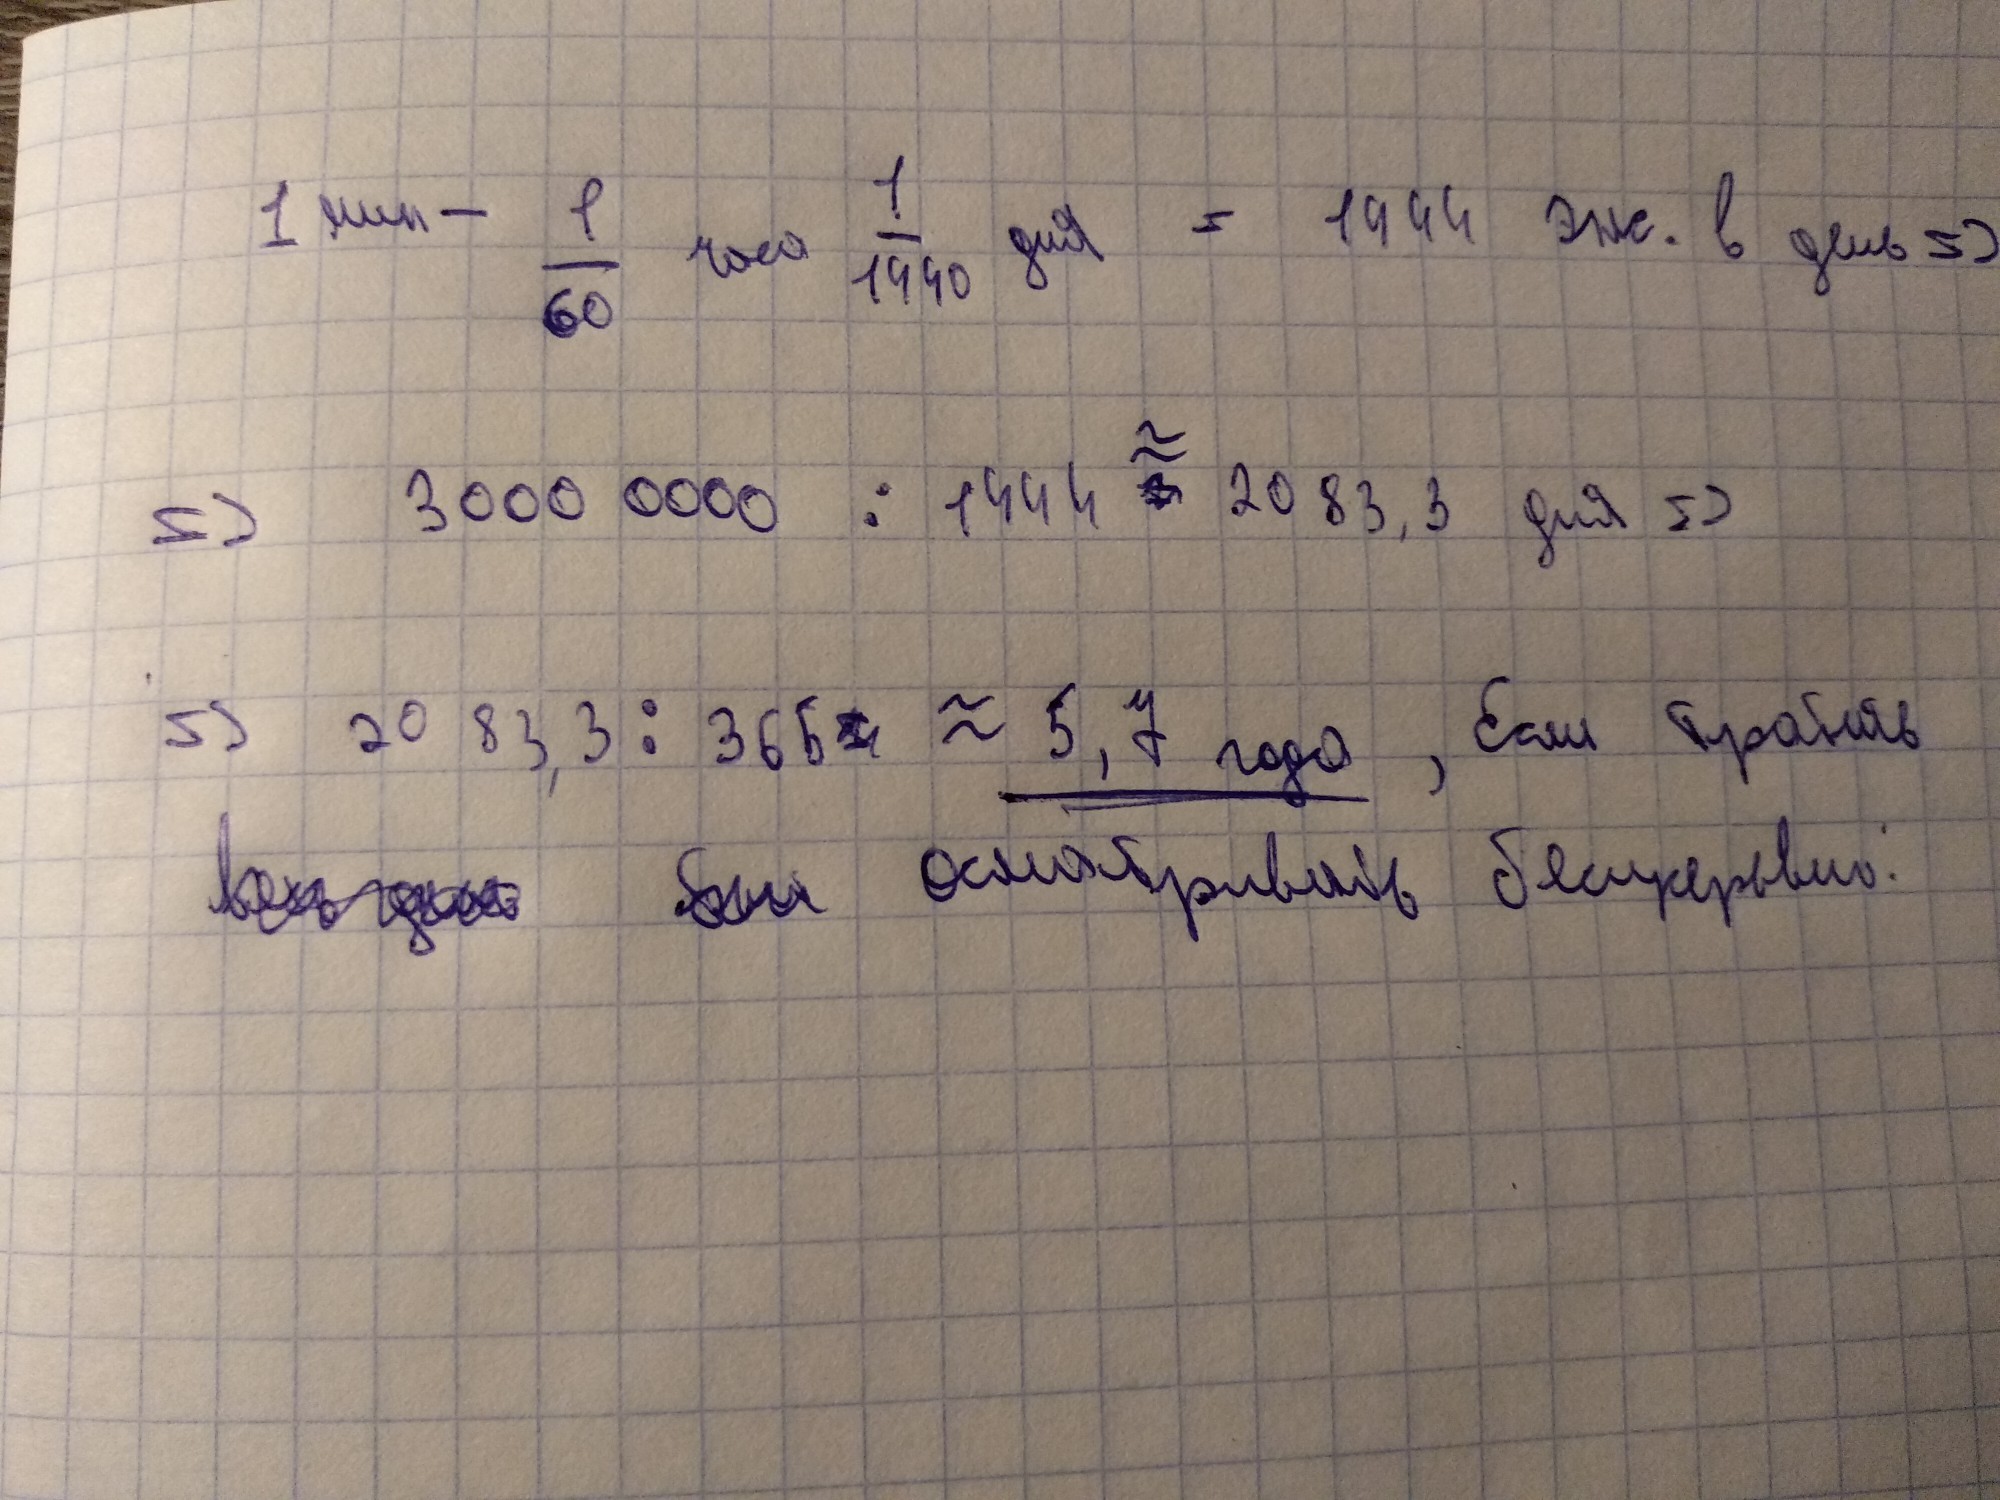 1 мин - 1/60 часа 1/1440 дня = 1444 экс. в день =>
=> 3000 0000 : 1444 ≈ 2083,3 дня =>
=> 2083,3 : 365 ≈ 5,7 года, Если тратить
осматривать беспрерывно.